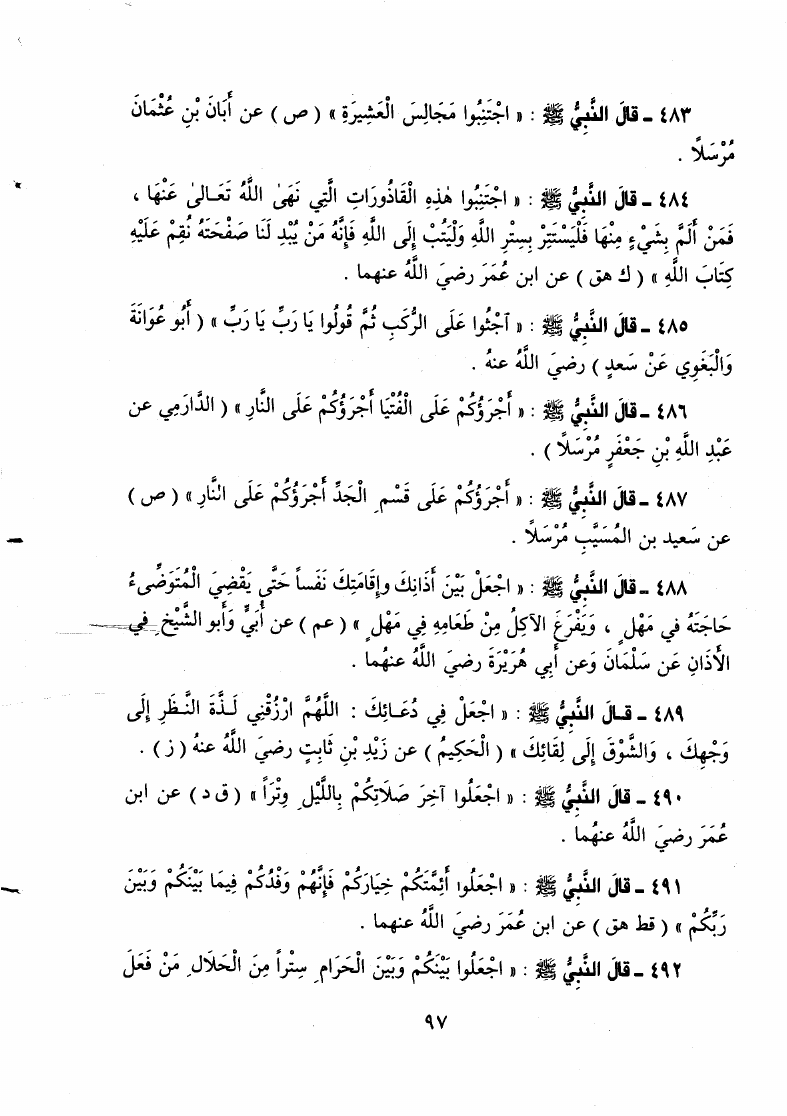 ٤٨٣ - قَالَ النَّبِيُّ ﷺ : « اجْتَنِبُوا مَجَالِسَ الْعَشِيرَةِ » ( ص ) عن أَبَانَ بْنِ عُثْمَانَ
مُرْسَلاً .
٤٨٤ - قَالَ النَّبِيُّ ﷺ : « اجْتَنِبُوا هٰذِهِ الْقَاذُورَاتِ الَّتِي نَهَىٰ اللَّهُ تَعَالىٰ عَنْهَا ،
فَمَنْ أَلَمَّ بِشَيْءٍ مِنْهَا فَلْيَسْتَتِرْ بِسِتْرِ اللَّهِ وَلْيَتُبْ إِلَى اللَّهِ فَإِنَّهُ مَنْ يُبْدِ لَنَا صَفْحَتَهُ نُقِمْ عَلَيْهِ
كِتَابَ اللَّهِ » ( ك هق ) عن ابن عُمَرَ رضيَ اللَّهُ عنهما .
٤٨٥ - قَالَ النَّبِيُّ ﷺ : « آجْثُوا عَلَى الرُّكَبِ ثُمَّ قُولُوا يَا رَبِّ يَا رَبِّ » ( أَبُو عَوَانَةَ
وَالْبَغَوِي عَنْ سَعدٍ ) رضي اللَّهُ عنهُ .
٤٨٦ - قَالَ النَّبِيُّ ﷺ : « أَجْرَؤُكُمْ عَلَى الْفُتْيَا أَجْرَؤُكُمْ عَلَى النَّارِ » ( الدَّارَمِي عن
عَبْدِ اللَّهِ بْنِ جَعْفَرٍ مُرْسَلاً ) .
٤٨٧ - قَالَ النَّبِيُّ ﷺ : « أَجْرَؤُكُمْ عَلَى قَسْمِ الْجَدِّ أَجْرَؤُكُمْ عَلَى النَّارِ » ( ص )
عن سَعيد بن المُسَيَّبِ مُرْسَلاً .
٤٨٨ - قَالَ النَّبِيُّ ﷺ : « اجْعَلْ بَيْنَ أَذَانِكَ وإِقَامَتِكَ نَفَساً حَتَّى يَقْضِيَ الْمُتَوَضِّىءُ
حَاجَتَهُ في مَهْلٍ ، وَيَفْرَغَ الآكِلُ مِنْ طَعَامِهِ فِي مَهْلٍ » ( عم ) عن أُبَيٍّ وأَبو الشَّيْخ في
الأَذَانِ عَن سَلْمَانَ وَعن أَبِي هُرَيْرَةَ رضيَ اللَّهُ عنهُما .
٤٨٩ - قَالَ النَّبِيُّ ﷺ : « اجْعَلْ فِي دُعَائِكَ : اللَّهُمَّ ارْزُقْنِي لَذَّةَ النَّظَرِ إِلَى
وَجْهِكَ ، وَالشَّوْقَ إِلَى لِقَائِكَ » ( الْحَكِيمُ ) عن زَيْدِ بْنِ ثَابِتٍ رضيَ اللَّهُ عنهُ ( ز ) .
٤٩٠ - قَالَ النَّبِيُّ ﷺ : « اجْعَلُوا آخِرَ صَلاَتِكُمْ بِاللَّيْلِ وِتْراً » ( ق د ) عن ابن
عُمَرَ رضيَ اللَّهُ عنهُما .
٤٩١ - قَالَ النَّبِيُّ ﷺ : « اجْعَلُوا أَئِمَّتَكُمْ خِيَارَكُمْ فَإِنَّهُمْ وَفْدُكُمْ فِيمَا بَيْنَكُمْ وَبَيْنَ
رَبِّكُمْ » ( قط هق ) عن ابن عُمَرَ رضيَ اللَّهُ عنهما .
٤٩٢ - قَالَ النَّبِيُّ ﷺ : « اجْعَلُوا بَيْنَكُمْ وَبَيْنَ الْحَرَامِ سِتْراً مِنَ الْحَلاَلِ مَنْ فَعَلَ
٩٧